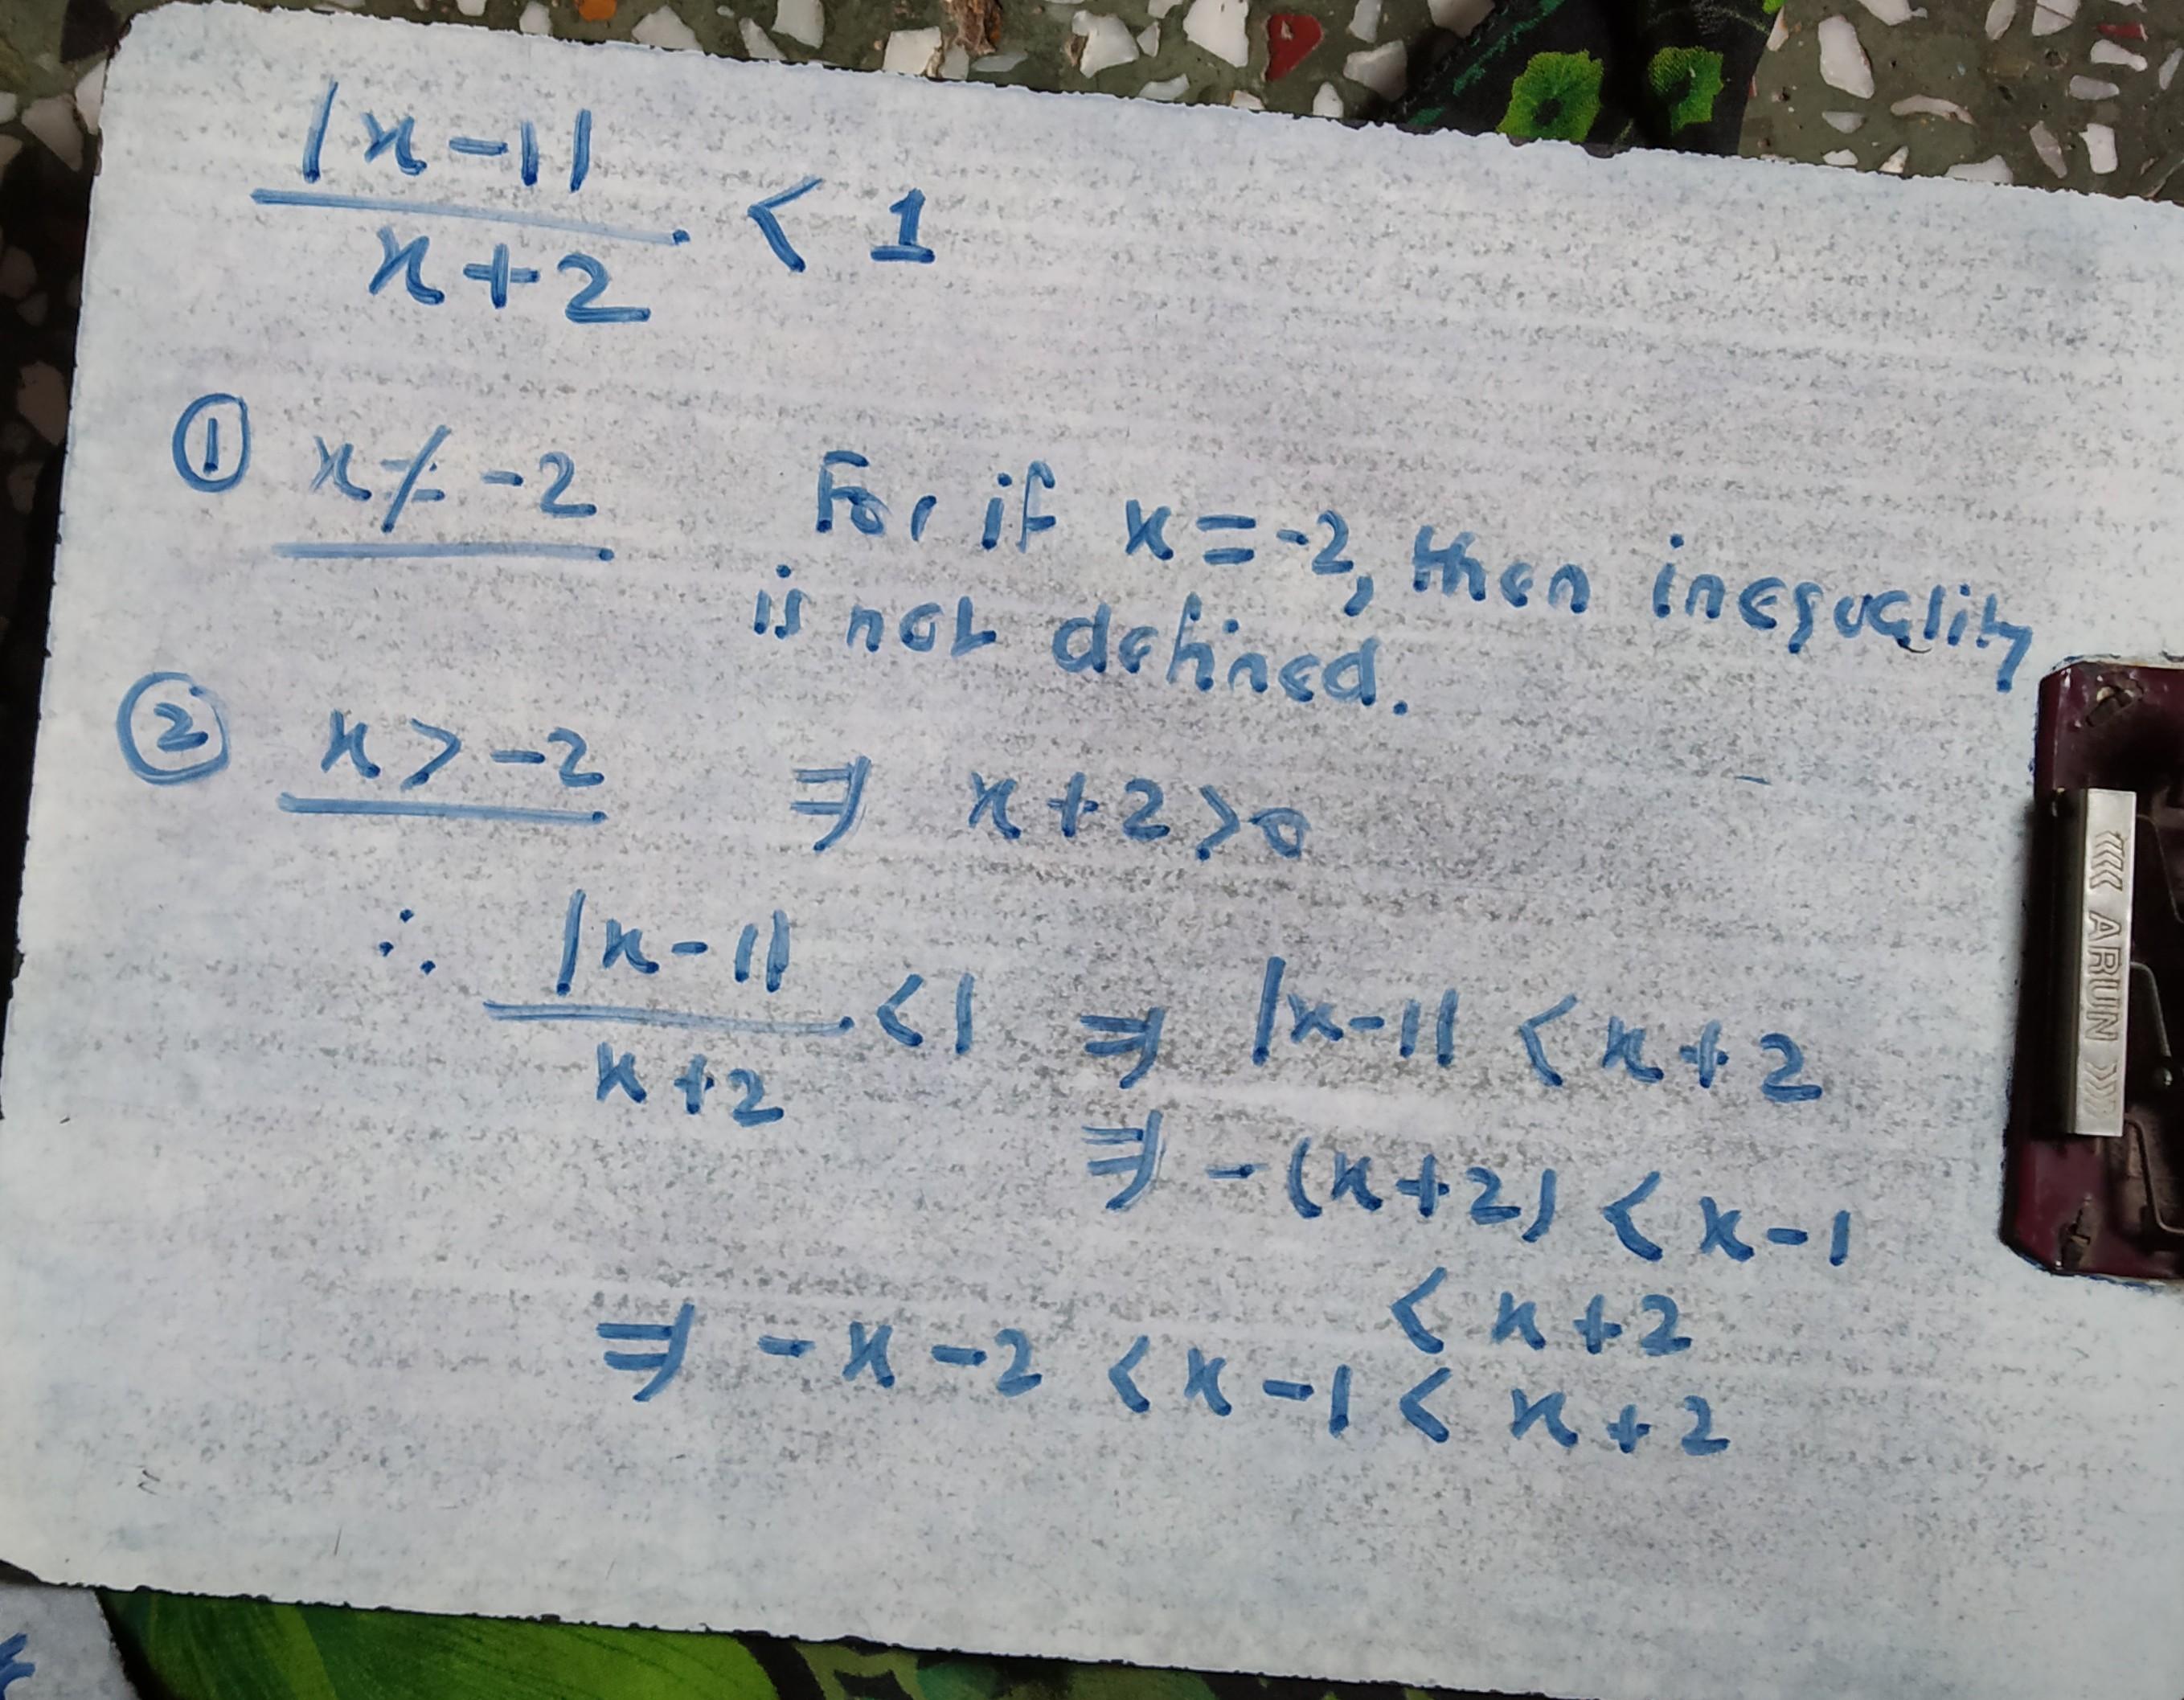 |x-1|
x+2 < 1
① x ≠ -2 For if x = -2, then inequality
is not defined.
② x > -2 ⇒ x+2 > 0
∴ |x-1|
x+2 < 1 ⇒ |x-1| < x+2
⇒ -(x+2) < x-1
< x+2
⇒ -x-2 < x-1 < x+2
<<<< ARUN >>>>